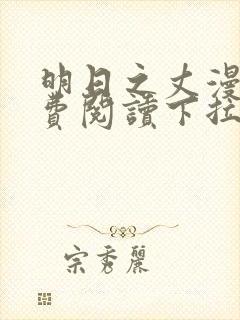 明日之丈漫
費閱讀下拉
宗秀麗